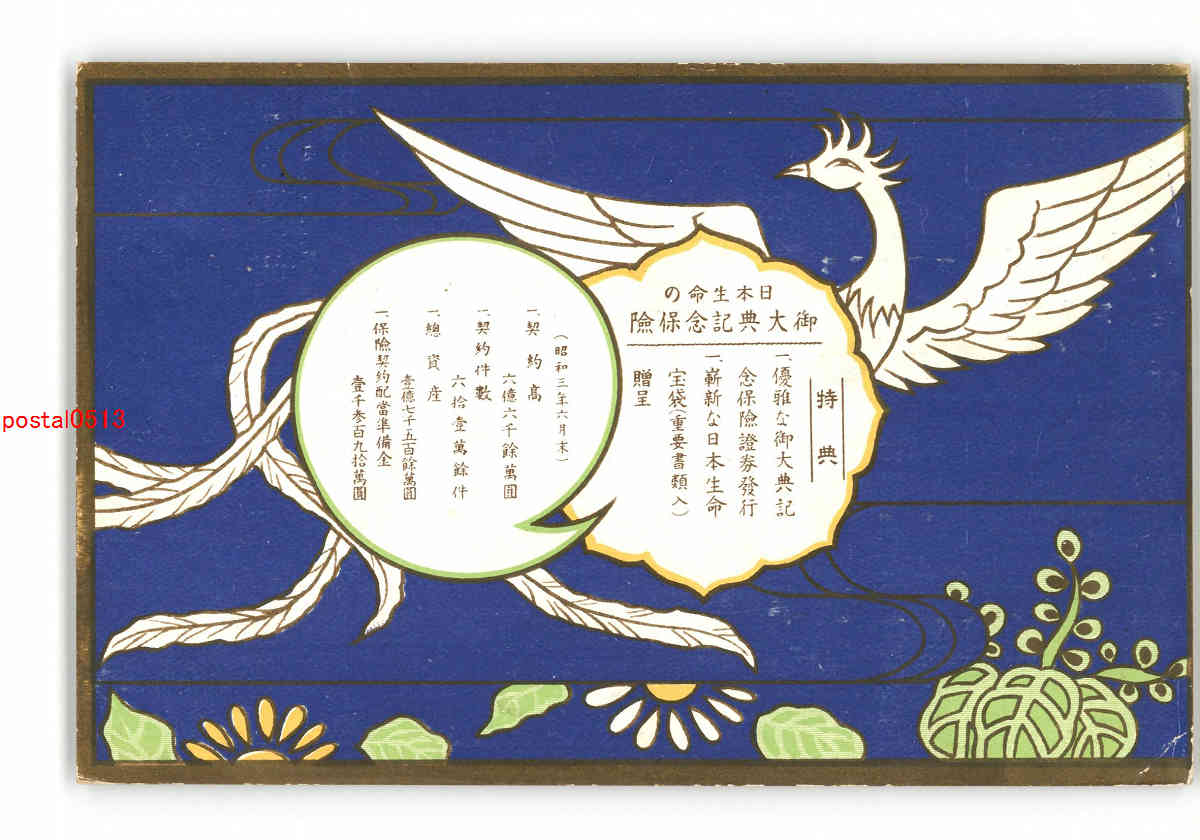 日本生命の
御大典記念保險
特典
一、優雅な御大典記
念保險證券發行
一、嶄新な日本生命
宝袋(重要書類入)
贈呈
(昭和三年六月末)
一、契約高
六億六千餘萬圓
一、契約件數
六拾壹萬餘件
一、總資産
壹億七千五百餘萬圓
一、保險契約配當準備金
壹千參百九拾萬圓
postal0513